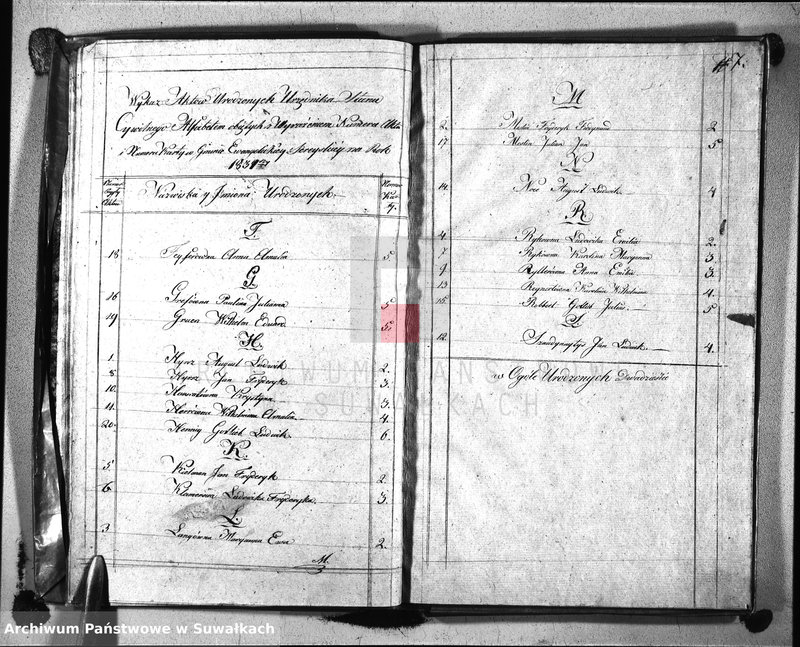 Wykaz Aktów Urodzonych Urzędnika Stanu
Cywilnego Alfabetem obiętych z Wyrażeniem Numeru Aktu
i Numeru Karty w Gminie Ewangelickiey Sereyskiey na Rok
1831
Numer Aktu
Nazwiska y Jmiona Urodzonych
Numer Karty
F.
18 Anna Amalia 5
G
16 Paulina Julianna 5
19 Gruen Wilhelm Eduard 5.
H.
1. Hyrsz August Ludwik 2.
8. Hyrsz Jan Fryderyk 3.
10. Krystyna 3.
11. Wilhelmina Amalia 4.
20. Hennig Gottlieb Ludwik 6.
K.
5. Kielman Jan Fryderyk 2.
6. Ludwika Fryderyka 3.
L.
3 Langówna Maryanna Ewa 2.
M.
7.
M
2. Fryderyk 2
17. Julian Jan 5
N
14. Noce August Ludwik 4
R
4. Rykowna Ludwika Emilia 2.
7. Rykowna Karolina Maryanna 3.
9. Anna Emilia 3.
13 Karolina Wilhelmina 4.
15. Gottlieb Julius 5
S
12. Jan Ludwik 4.
w Ogóle Urodzonych Dwadzieścia
ARCHIWUM PAŃSTWOWE
W SUWAŁKACH
Archiwum Państwowe w Suwałkach